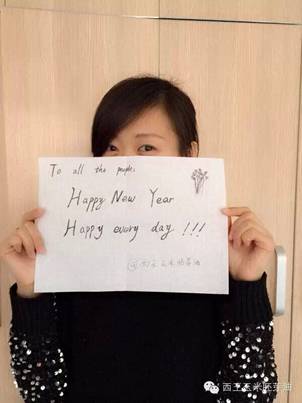 To all the people.
Happy New Year
Happy every day !!!
@西王玉米胚芽油
西王玉米胚芽油